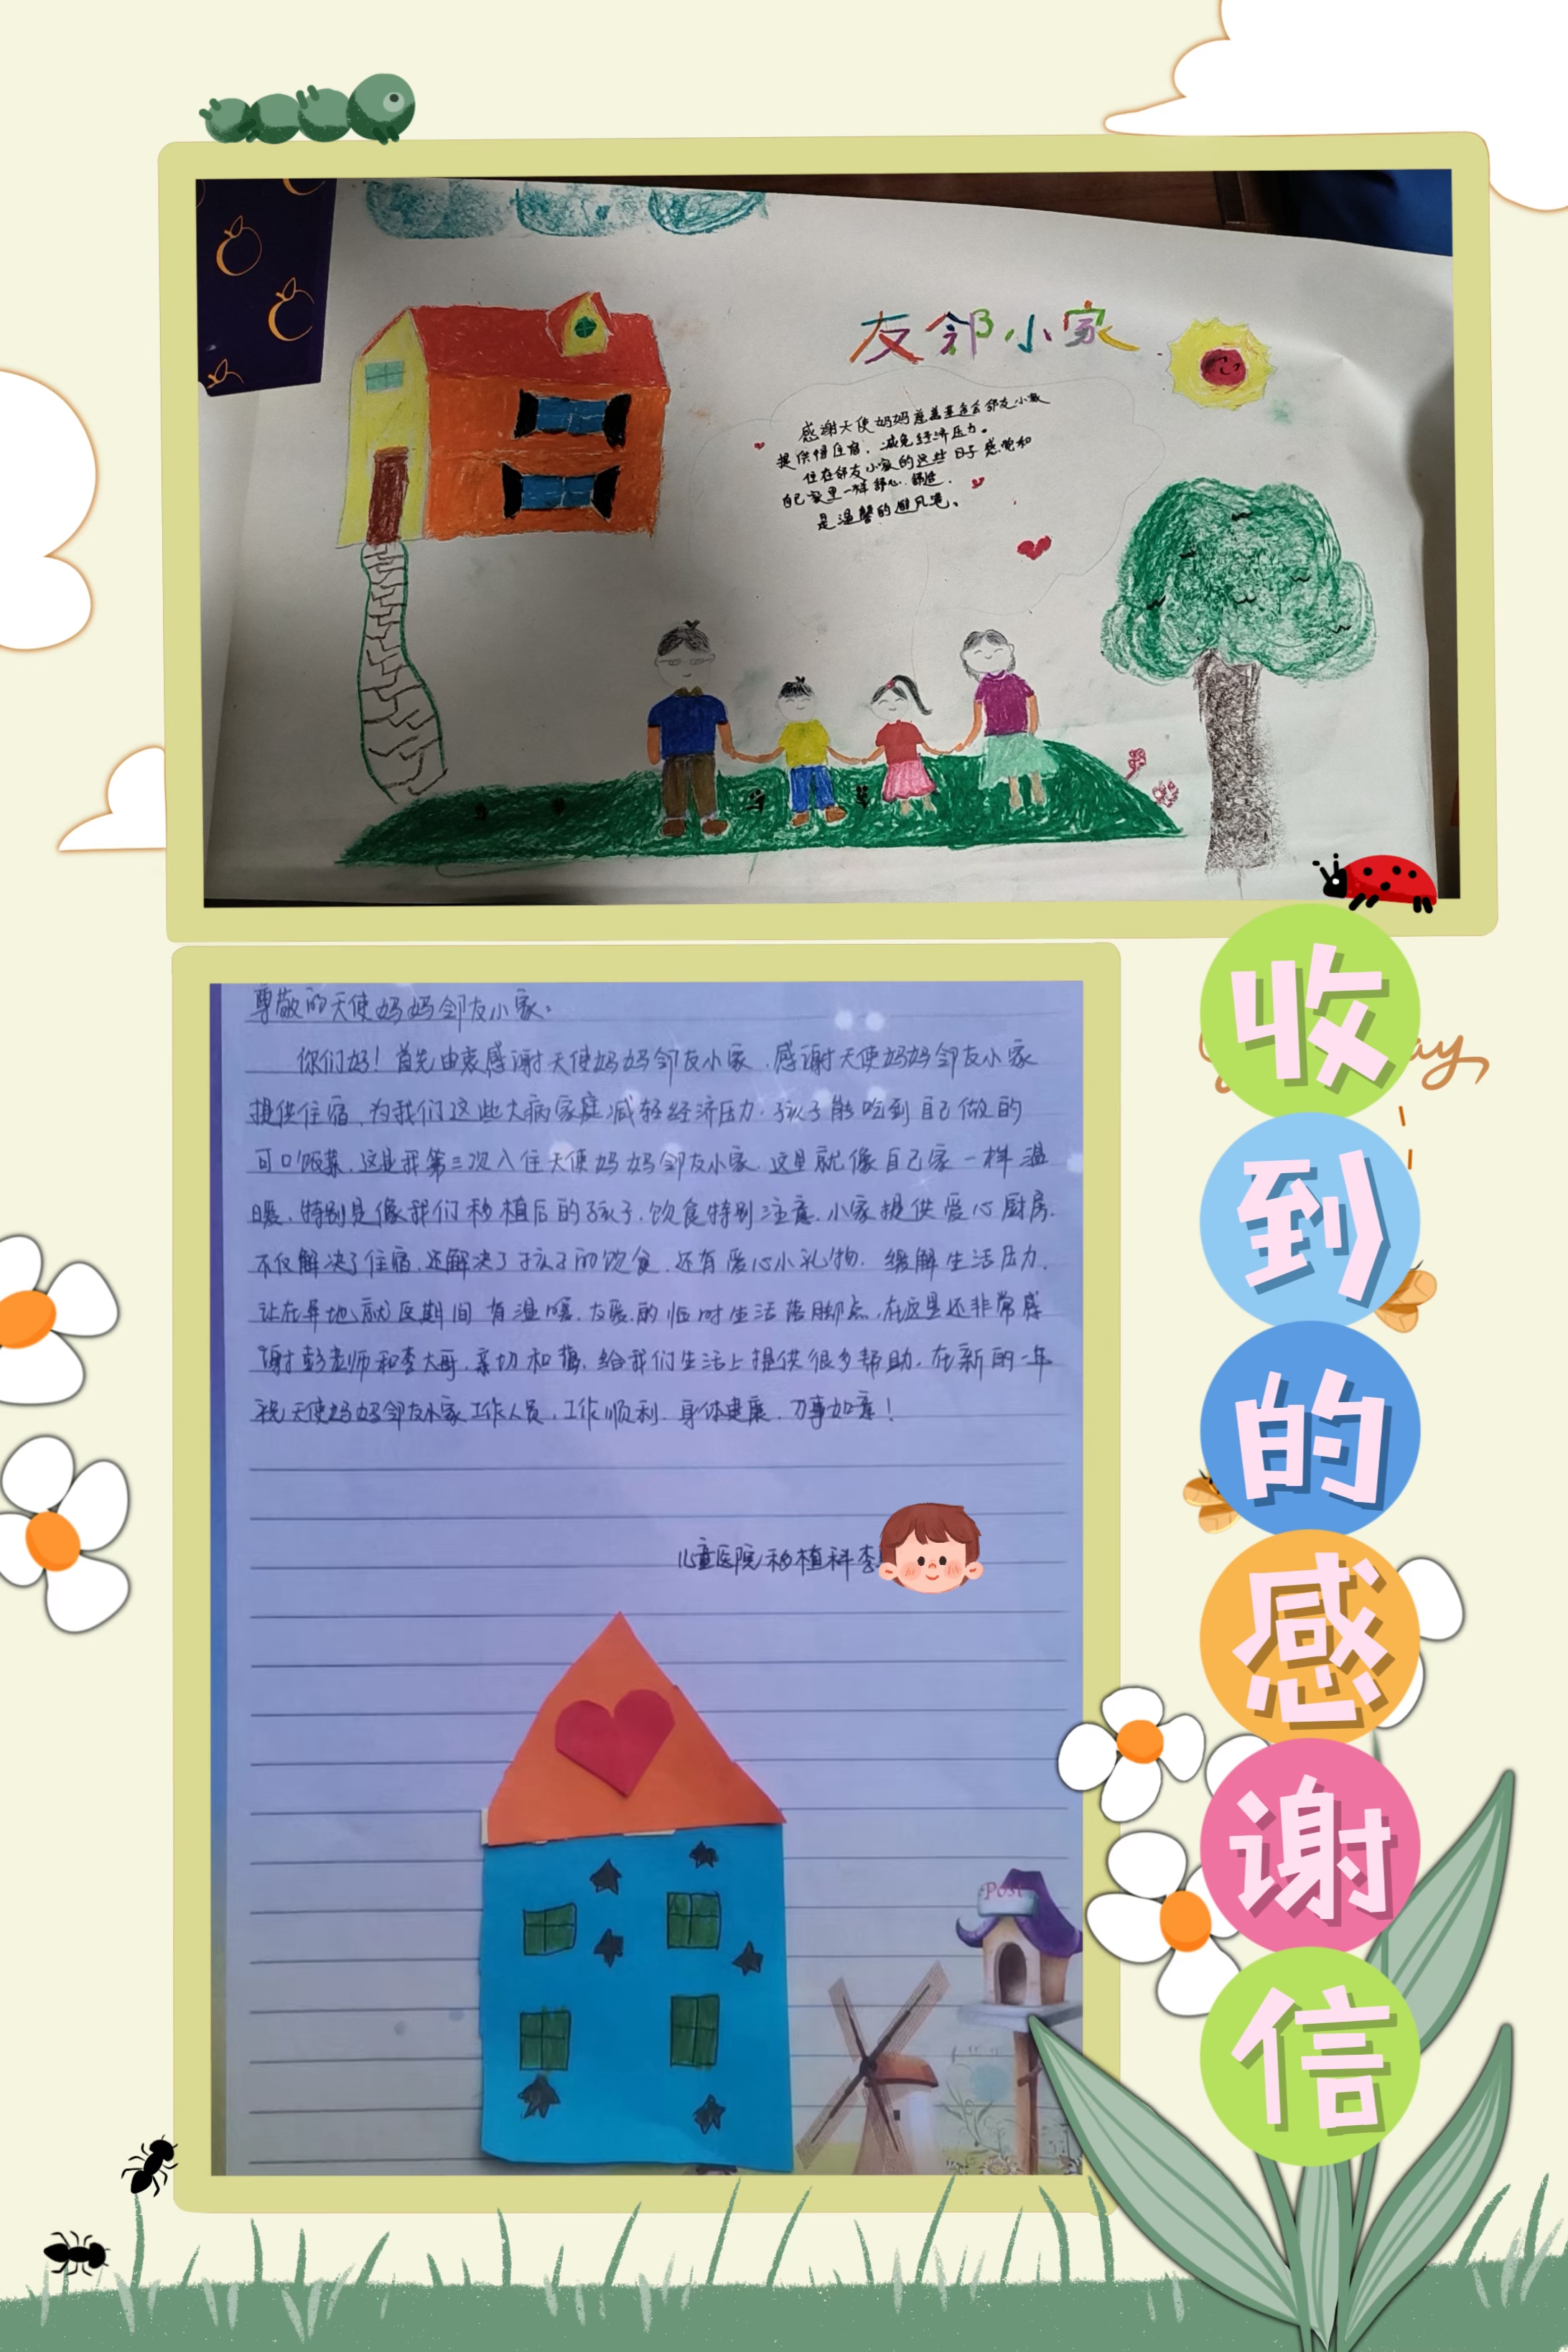 友邻小家
感谢天使妈妈慈善基金会邻友小家
提供住宿，减免经济压力。
住在邻友小家的这些日子感觉和
自己家里一样舒心、舒适，
是温馨的避风港。
尊敬的天使妈妈邻友小家：
你们好！首先由衷感谢天使妈妈邻友小家，感谢天使妈妈邻友小家
提供住宿，为我们这些大病家庭减轻经济压力，孩子能吃到自己做的
可口饭菜，这是我第三次入住天使妈妈邻友小家，这里就像自己家一样温
暖，特别是像我们移植后的孩子，饮食特别注意，小家提供爱心厨房，
不仅解决了住宿，还解决了孩子的饮食，还有爱心小礼物，缓解生活压力，
让在异地就医期间有温暖，友爱的临时生活落脚点，在这里还非常感
谢彭老师和李大哥，亲切和蔼，给我们生活上提供很多帮助，在新的一年
祝天使妈妈邻友小家工作人员，工作顺利，身体健康，万事如意！
儿童医院移植科李
Post
收
到
的
感
谢
信
ay